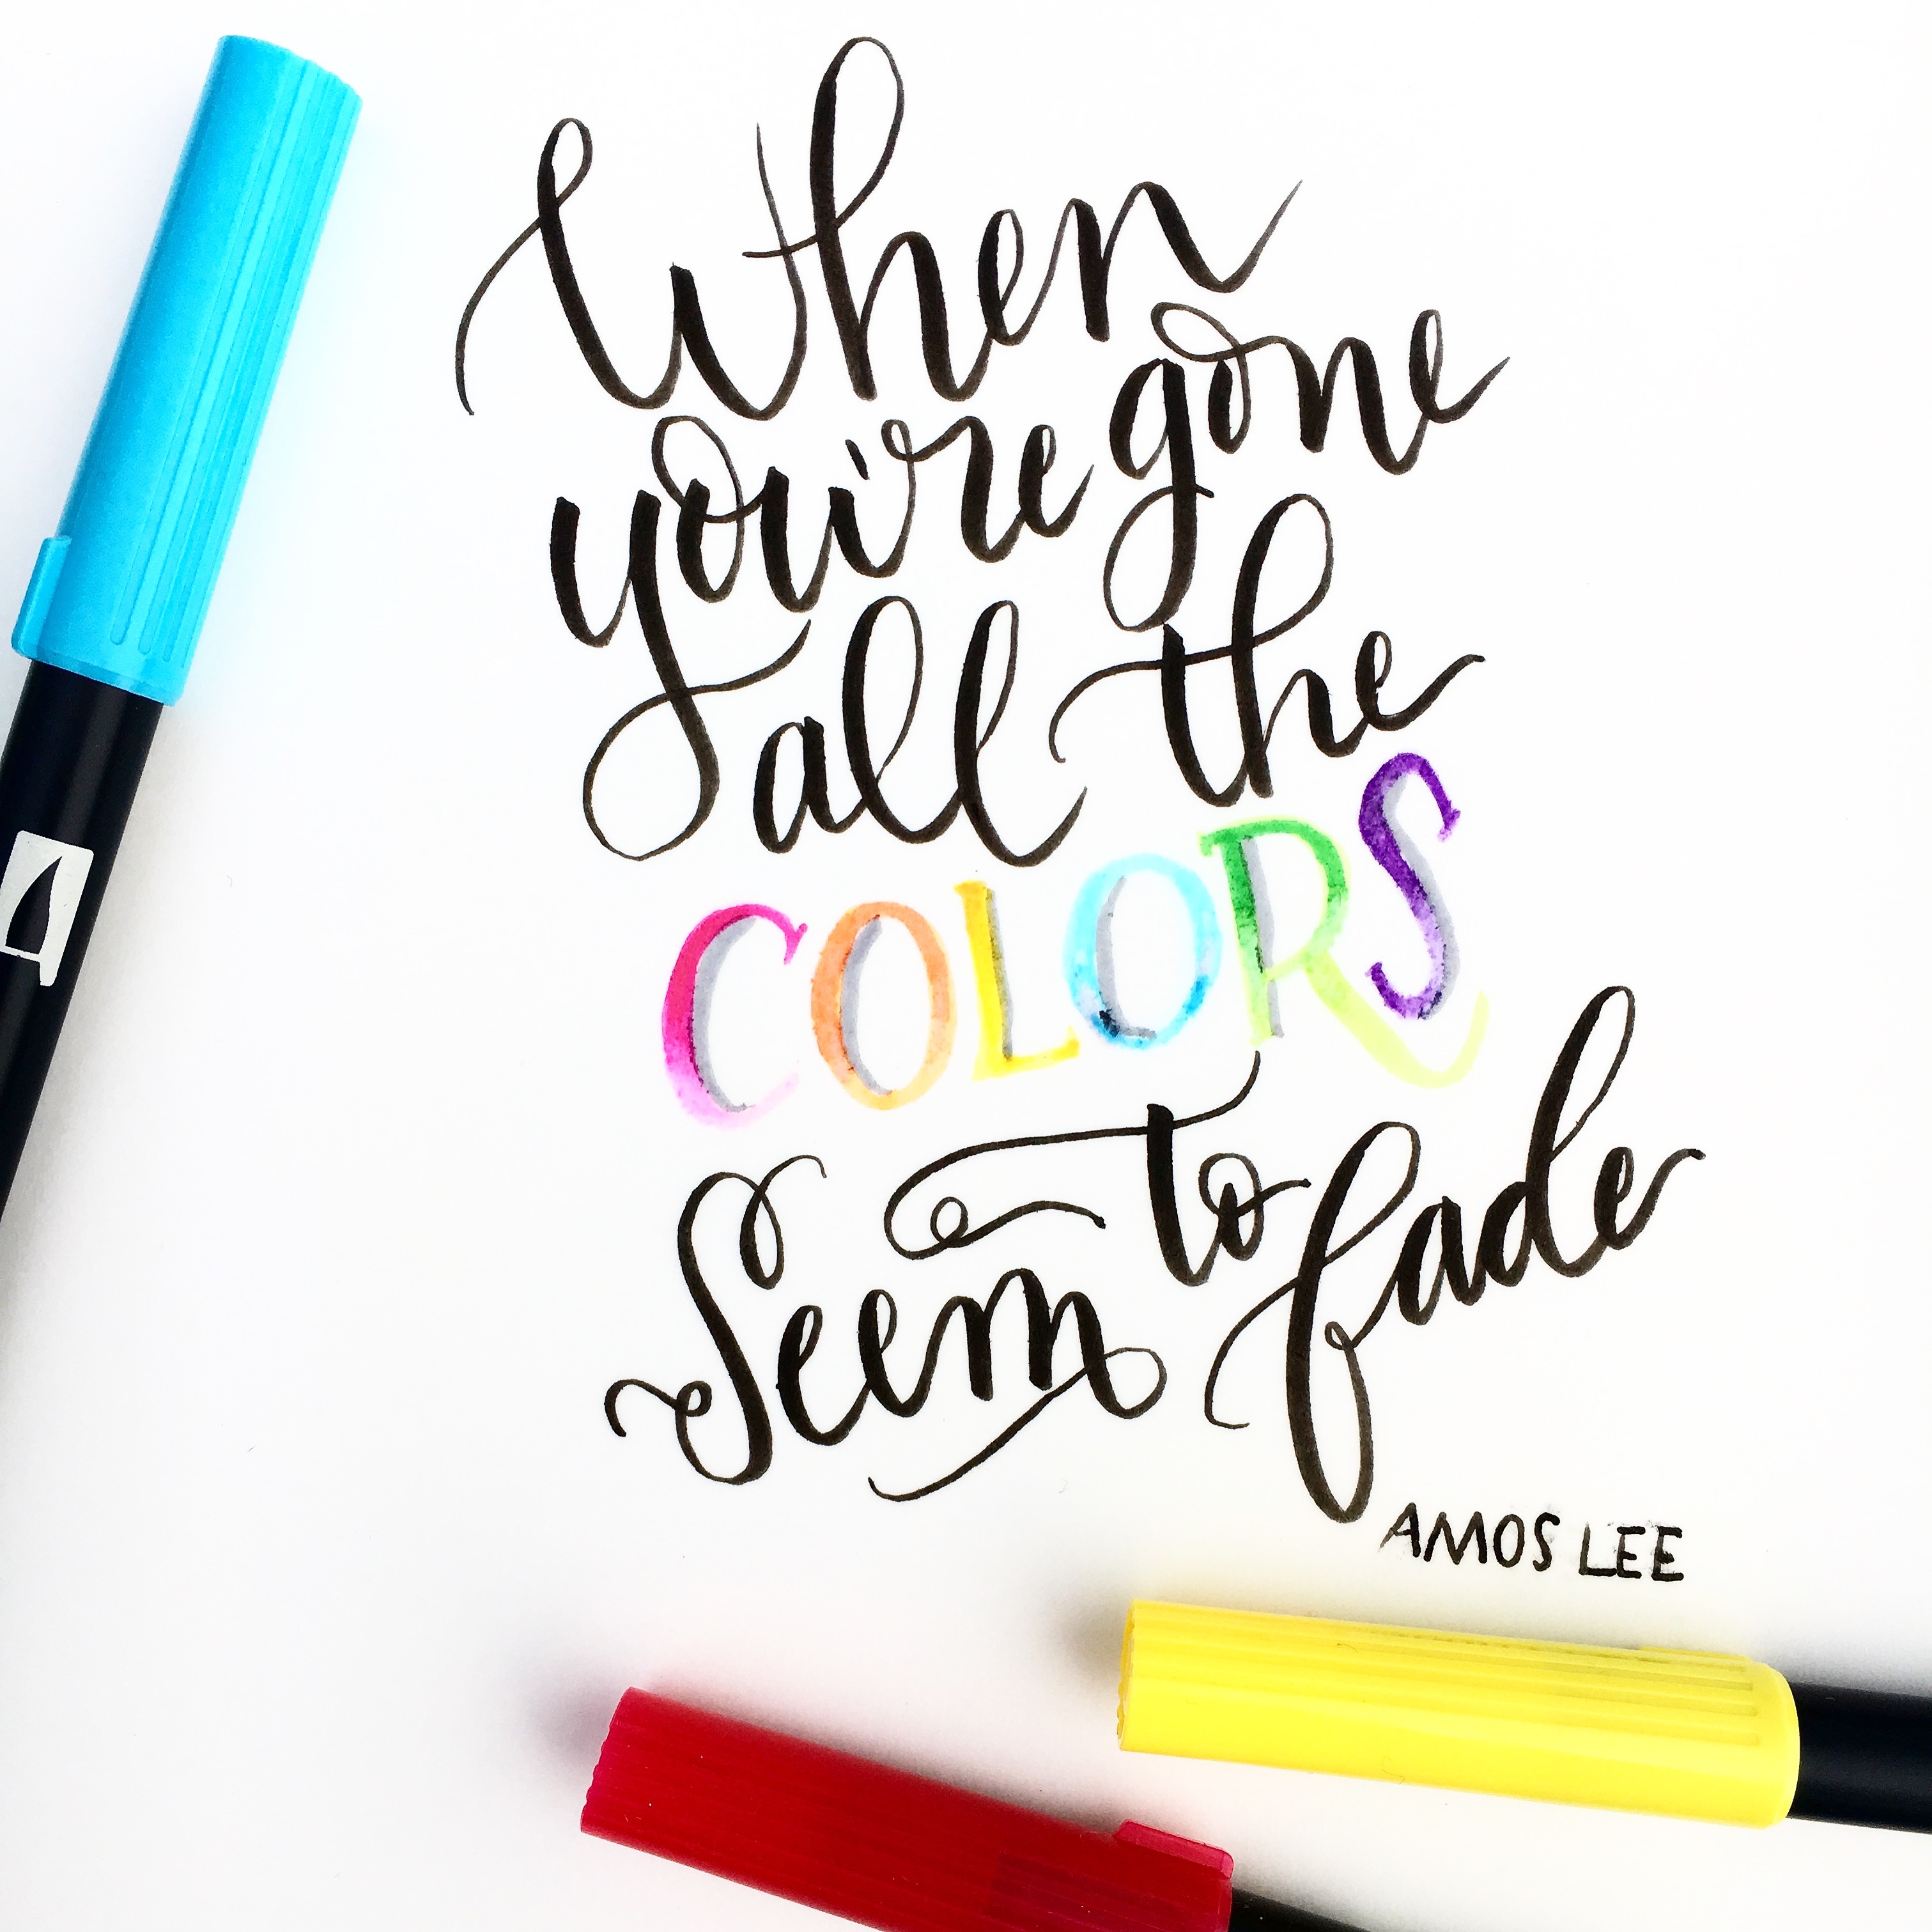 When
you're gone
all the
COLORS
Seem to fade
AMOS LEE